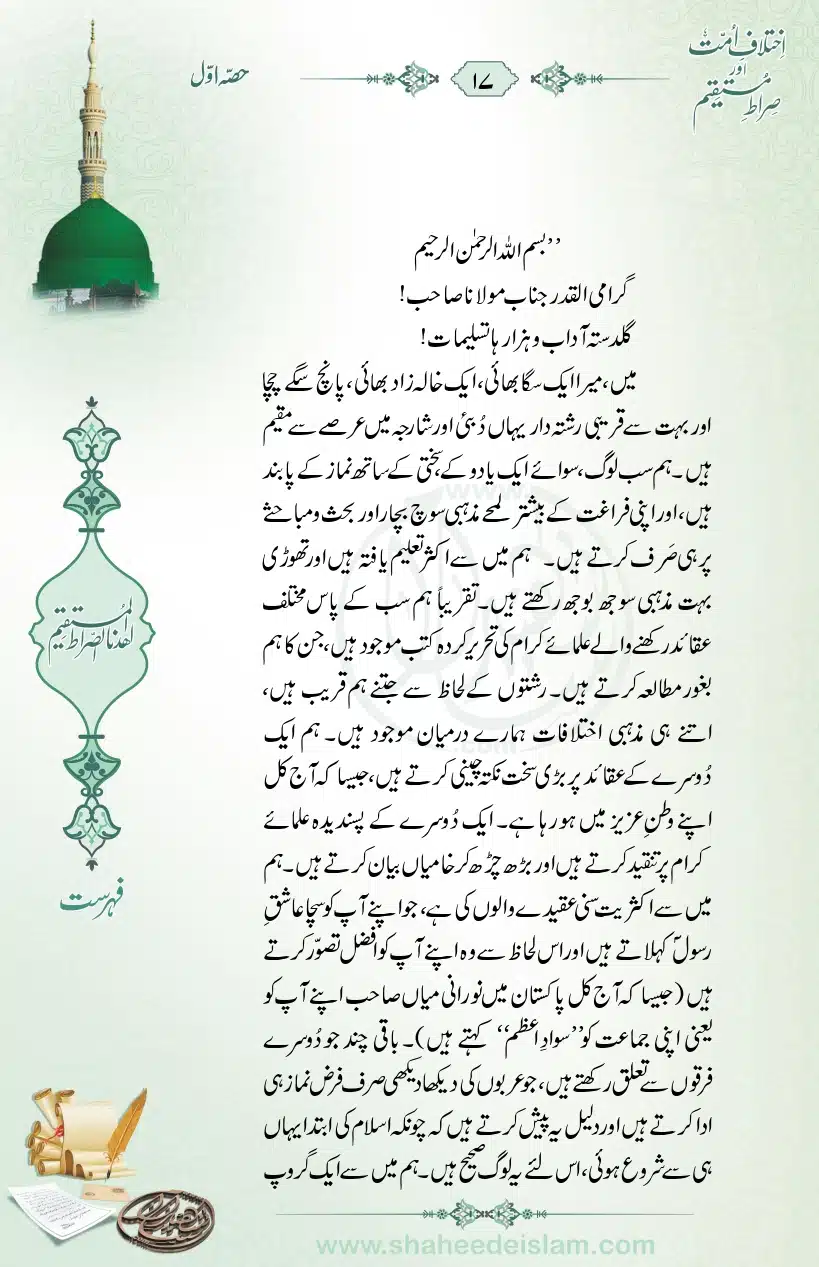 اِختلافِ اُمّت
اور
صِراطِ مُستقیم
۱۷
حصّہ اوّل
’’بسم اللہ الرحمٰن الرحیم
گرامی القدر جناب مولانا صاحب!
گلدستہ آداب و ہزارہا تسلیمات!
میں، میرا ایک سگا بھائی، ایک خالہ زاد بھائی، پانچ سگے چچا
اور بہت سے قریبی رشتہ دار یہاں دُبئی اور شارجہ میں عرصے سے مقیم
ہیں۔ ہم سب لوگ، سوائے ایک یا دو کے، سختی کے ساتھ نماز کے پابند
ہیں، اور اپنی فراغت کے بیشتر لمحے مذہبی سوچ بچار اور بحث و مباحثے
پر ہی صَرف کرتے ہیں۔ ہم میں سے اکثر تعلیم یافتہ ہیں اور تھوڑی
بہت مذہبی سوجھ بوجھ رکھتے ہیں۔ تقریباً ہم سب کے پاس مختلف
عقائد رکھنے والے علمائے کرام کی تحریر کردہ کتب موجود ہیں، جن کا ہم
بغور مطالعہ کرتے ہیں۔ رشتوں کے لحاظ سے جتنے ہم قریب ہیں،
اتنے ہی مذہبی اختلافات ہمارے درمیان موجود ہیں۔ ہم ایک
دُوسرے کے عقائد پر بڑی سخت نکتہ چینی کرتے ہیں، جیسا کہ آج کل
اپنے وطنِ عزیز میں ہو رہا ہے۔ ایک دُوسرے کے پسندیدہ علمائے
کرام پر تنقید کرتے ہیں اور بڑھ چڑھ کر خامیاں بیان کرتے ہیں۔ ہم
میں سے اکثریت سنی عقیدے والوں کی ہے، جو اپنے آپ کو سچا عاشقِ
رسولؐ کہلاتے ہیں اور اس لحاظ سے وہ اپنے آپ کو افضل تصوّر کرتے
ہیں (جیسا کہ آج کل پاکستان میں نورانی میاں صاحب اپنے آپ کو
یعنی اپنی جماعت کو ’’سوادِ اعظم‘‘ کہتے ہیں)۔ باقی چند جو دُوسرے
فرقوں سے تعلق رکھتے ہیں، جو عربوں کی دیکھا دیکھی صرف فرض نماز ہی
ادا کرتے ہیں اور دلیل یہ پیش کرتے ہیں کہ چونکہ اسلام کی ابتدا یہاں
ہی سے شروع ہوئی، اس لئے یہ لوگ صحیح ہیں۔ ہم میں سے ایک گروپ
اھدنا الصراط المستقیم
فہرست
www.shaheedeislam.com